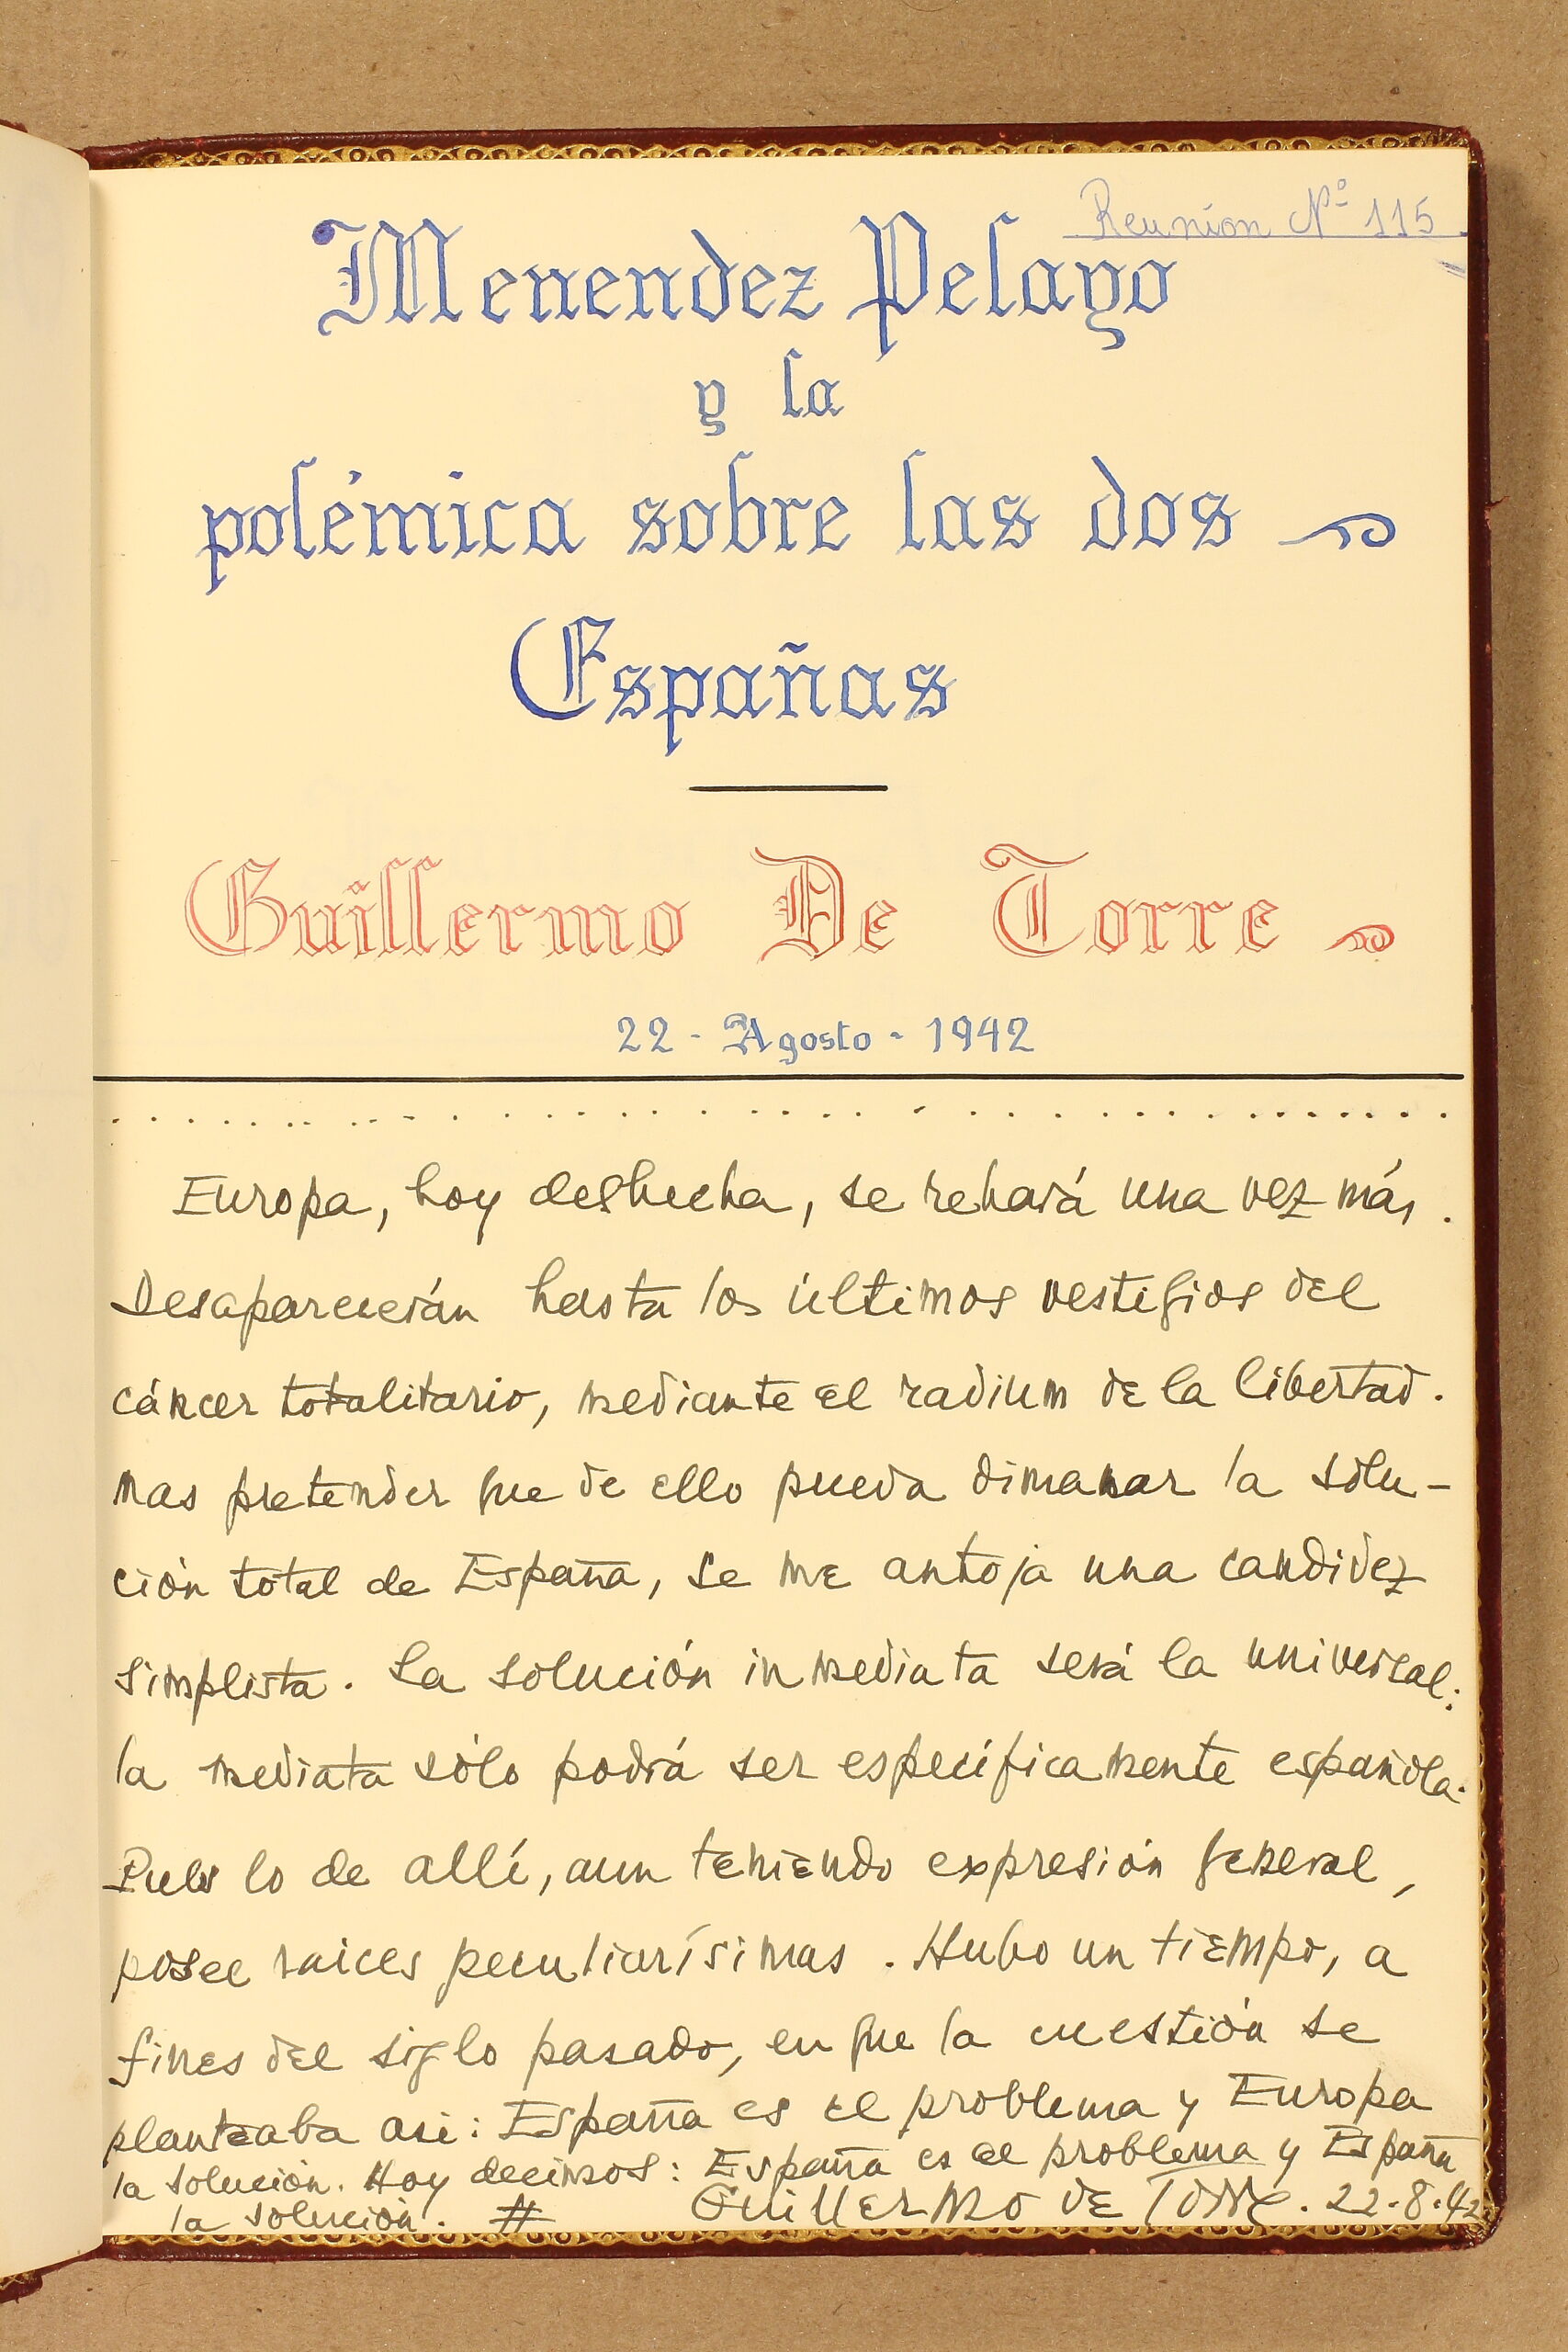 Reunion Nº 115.
Menendez Pelayo
y la
polémica sobre las dos
Españas
Guillermo De Torre
22 - Agosto - 1942
Europa, hoy deshecha, se rehará una vez más.
Desaparecerán hasta los últimos vestigios del
cáncer totalitario, mediante el radium de la libertad.
mas pretender que de ello pueda dimanar la solu-
ción total de España, se me antoja una candidez
simplista. La solución inmediata será la universal;
la mediata sólo podrá ser específicamente española.
Pues lo de allí, aun teniendo expresión general,
posee raices peculiarísimas. Hubo un tiempo, a
fines del siglo pasado, en que la cuestión se
planteaba asi: España es el problema y Europa
la solución. Hoy decimos: España es el problema y España
la solución. #
Guillermo de Torre. 22.8.42